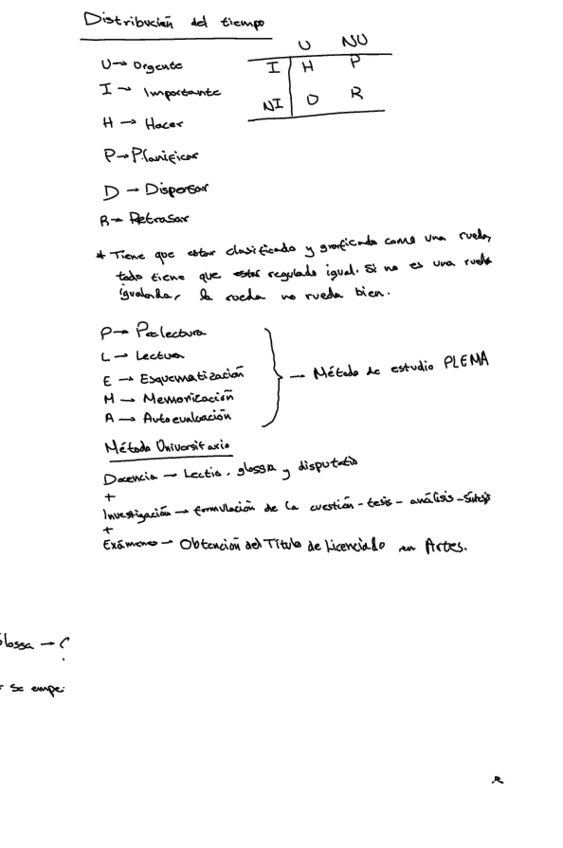 Distribución del tiempo
U NU
U → Urgente
I H P
I → Importante
NI D R
H → Hacer
P → Planificar
D → Dispersar
R → Retrasar
* Tiene que estar clasificado y graficado como una rueda,
todo tiene que estar regulado igual. Si no es una rueda
igualada, la rueda no rueda bien.
P → Prelectura
L → Lectura
E → Esquematización → Método de estudio PLEMA
M → Memorización
A → Autoevaluación
Método Universitario
Docencia → Lectio, glossa y disputatio
+
Investigación → formulación de la cuestión - tesis - análisis - síntesis
+
Exámenes → Obtención del Título de Licenciado en Artes.
lossa →
se empe